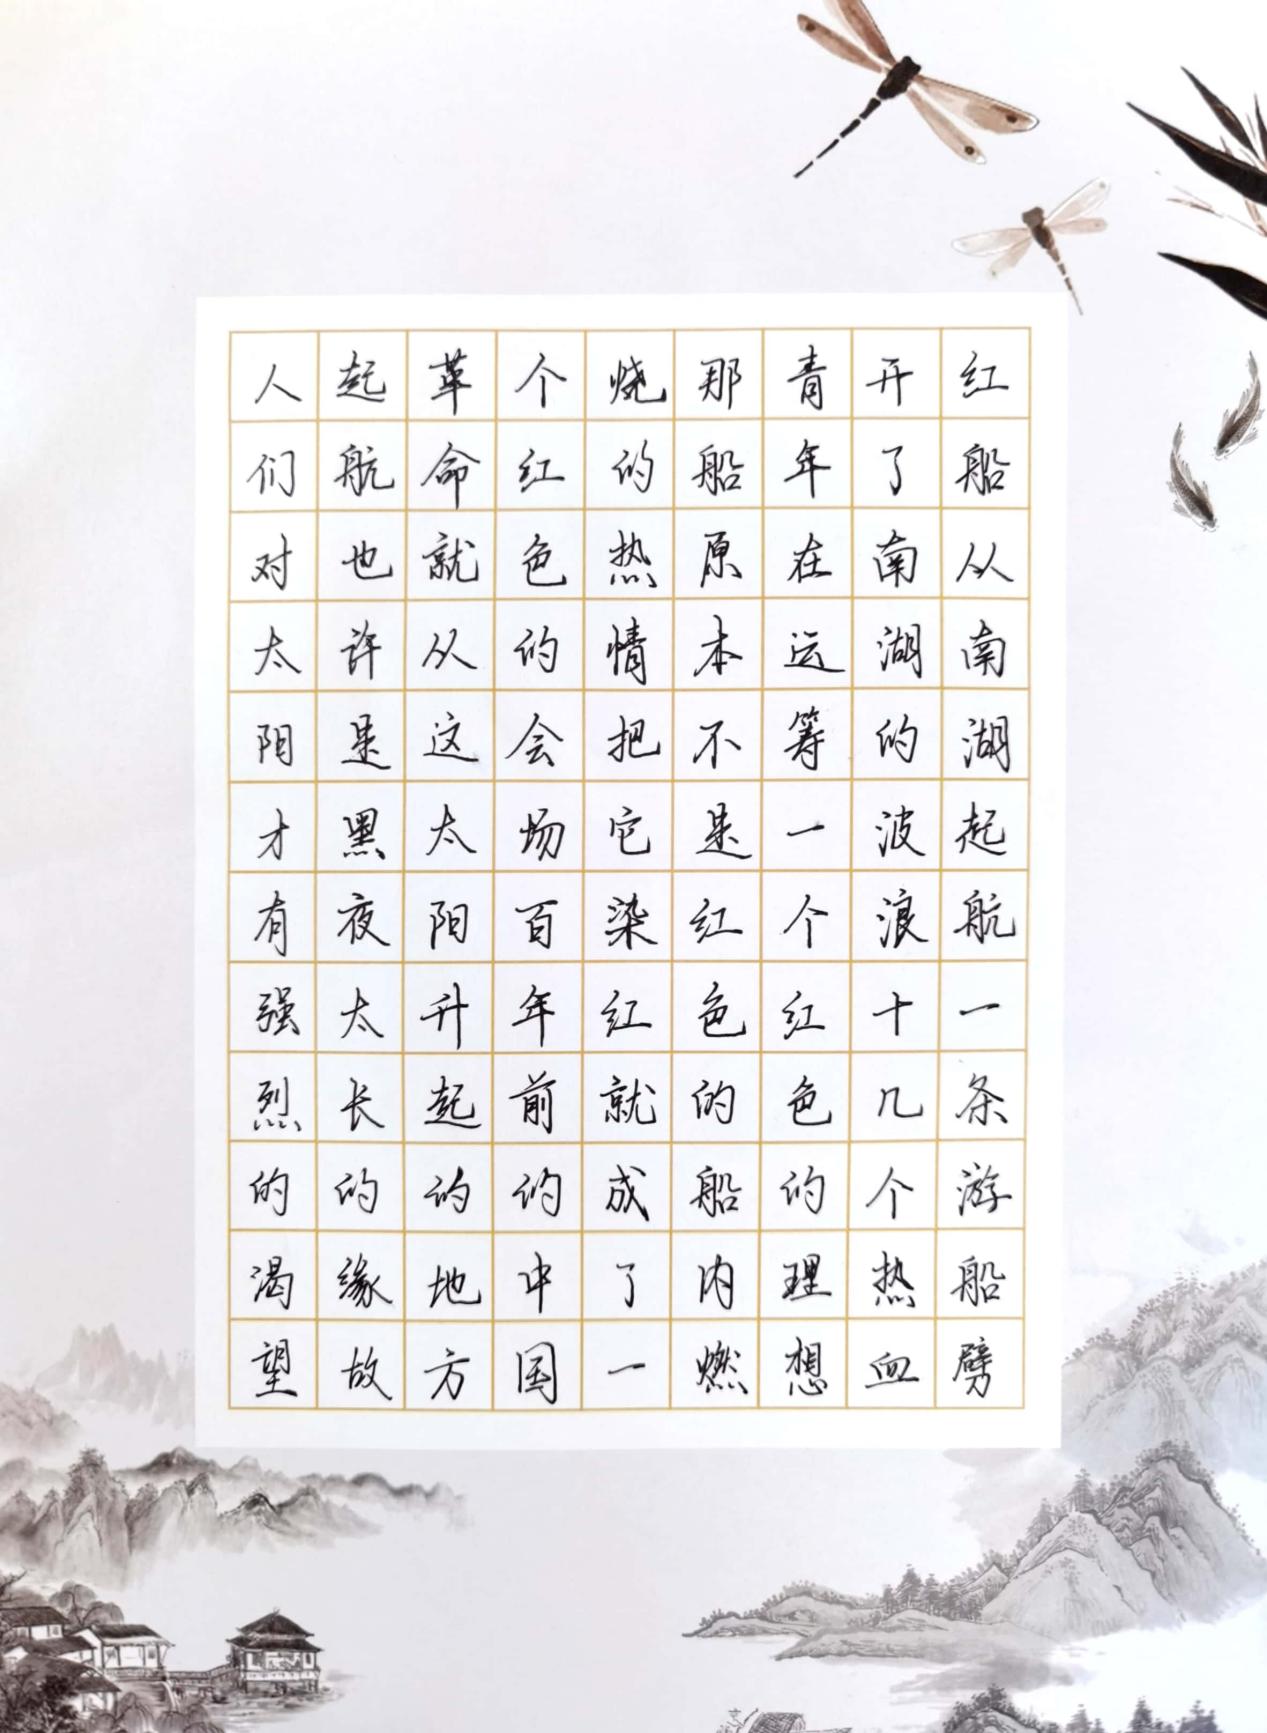 红船从南湖起航一条游船劈
开了南湖的波浪十几个热血
青年在运筹一个红色的理想
那船原本不是红色的船内燃
烧的热情把它染红就成了一
个红色的会场百年前的中国
革命就从这太阳升起的地方
起航也许是黑夜太长的缘故
人们对太阳才有强烈的渴望